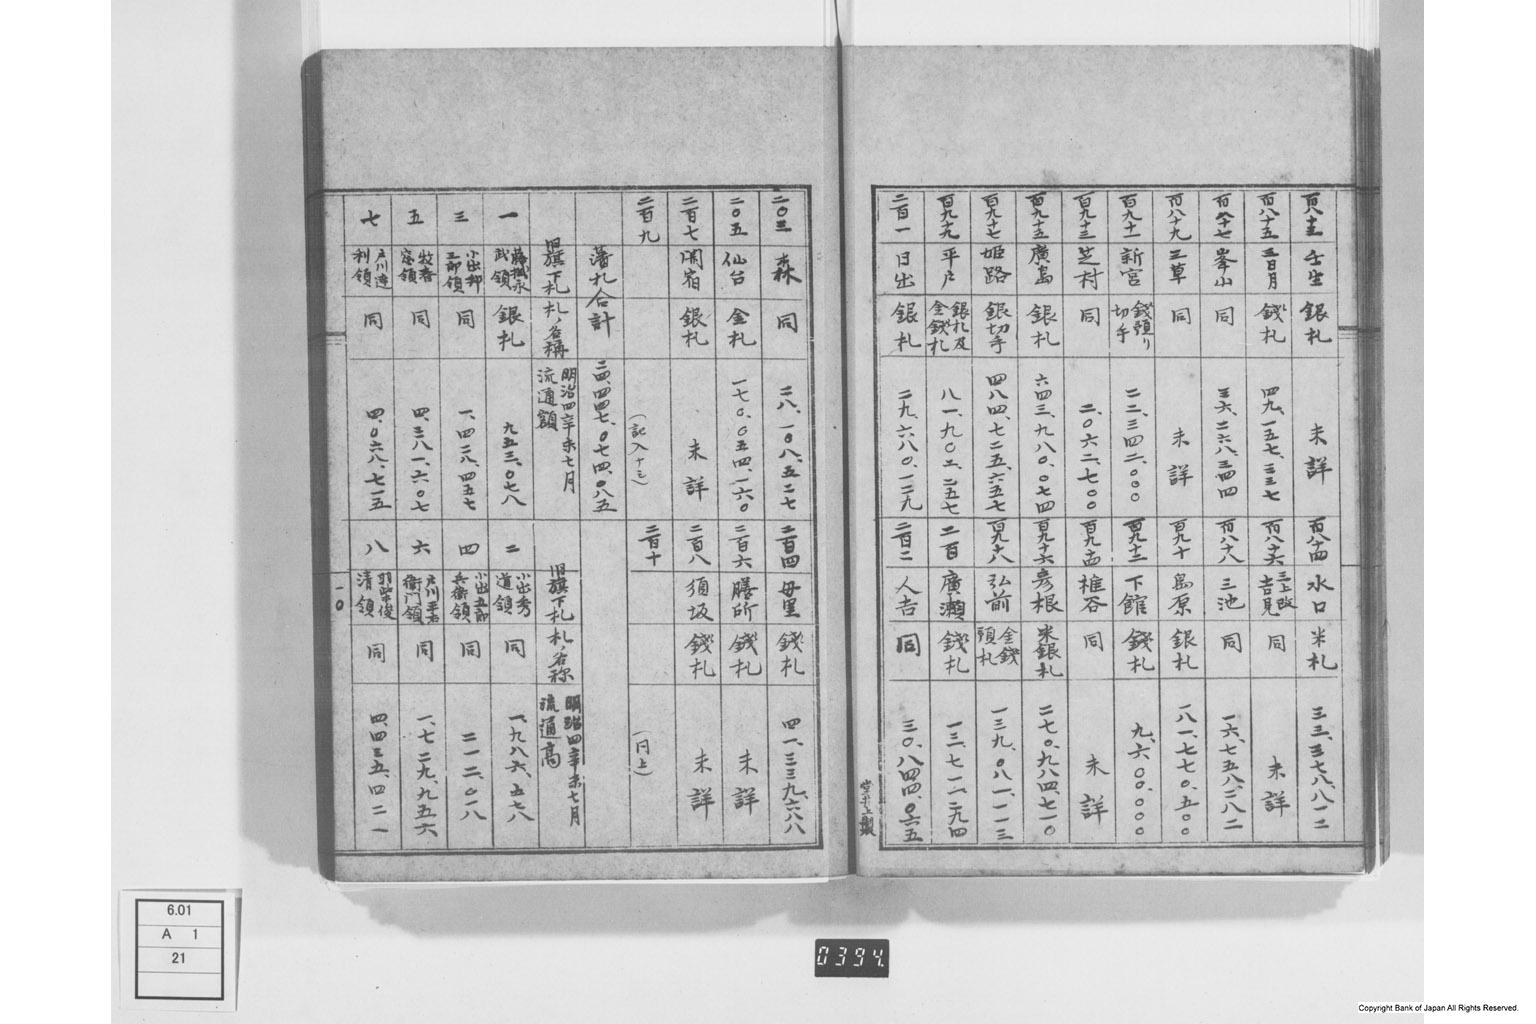 百八十三 壬生 銀札 未詳
百八十四 水口 米札 三三、三七八、八一二
百八十五 三日月 銭札 四九、一五七、三三七
百八十六 三上改吉見 同 未詳
百八十七 峯山 同 三六、二六八、三四四
百八十八 三池 同 一六、七五八、二八二
百八十九 三草 同 未詳
百九十 島原 銀札 一八一、七七〇、五〇〇
百九十一 新宮 銭預り切手 二二、三四二、〇〇〇
百九十二 下館 銭札 九、六〇〇、〇〇〇
百九十三 芝村 同 二、〇六二、七〇〇
百九十四 椎谷 同 未詳
百九十五 廣島 銀札 六四三、九八〇、〇七四
百九十六 彦根 米銀札 二七〇、九八四、七一〇
百九十七 姫路 銀切手 四八四、七二五、六五七
百九十八 弘前 金銭預札 一三九、〇八一、一一三
百九十九 平戸 銀札及金銭札 八一、九〇二、二五七
二百 廣瀬 銭札 一三、七一一、二九四
二百一 日出 銀札 二九、六八〇、一二九
二百二 人吉 同 三〇、八四四、〇六五
二〇三 森 同 二八、一〇八、五二七
二百四 母里 銭札 四一、三三九、六八八
二〇五 仙台 金札 一七〇、〇五四、一六〇
二百六 膳所 銭札 未詳
二百七 関宿 銀札 未詳
二百八 須坂 銭札 未詳
二百九 (記入ナシ)
二百十 (同上)
藩札合計 二四、四四七、〇七四、〇八五
旧旗下札札ノ名稱 明治四辛未七月流通額
旧旗下札札ノ名称 明治四辛未七月流通高
一 武領 銀札 九五三、〇七八
二 小出秀道領 同 一、九八六、五七八
三 小出邦三郎領 同 一、四二八、四五七
四 小出五郎兵衛領 同 二一二、〇一八
五 領 同 四、三八一、六〇七
六 戸川平右衛門領 同 一、七二九、九五六
七 戸川達利領 同 四、〇六八、七一五
八 羽柴俊清領 同 四、四三五、四二一
一〇
6.01
A 1
21
0394
Copyright Bank of Japan All Rights Reserved.